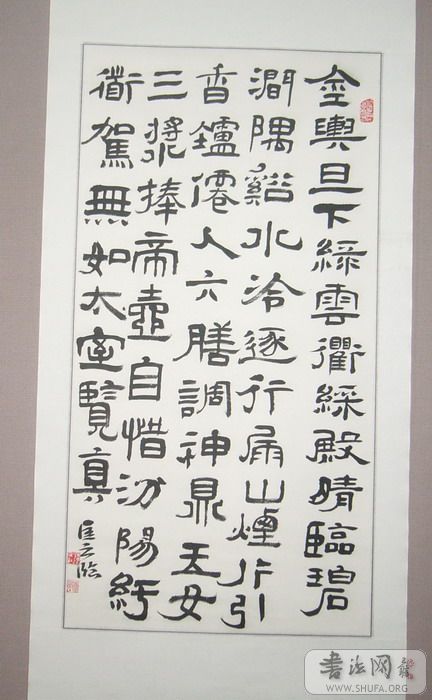 金輿旦下綠雲衢綵殿晴臨碧
澗隅谿水泠逐行屚山煙片引
香鑪僊人六膳調神鼎玉女
三漿捧帝壺自惜汾陽紆
衜駕無如太室覽真
書法网
WWW.SHUFA.ORG